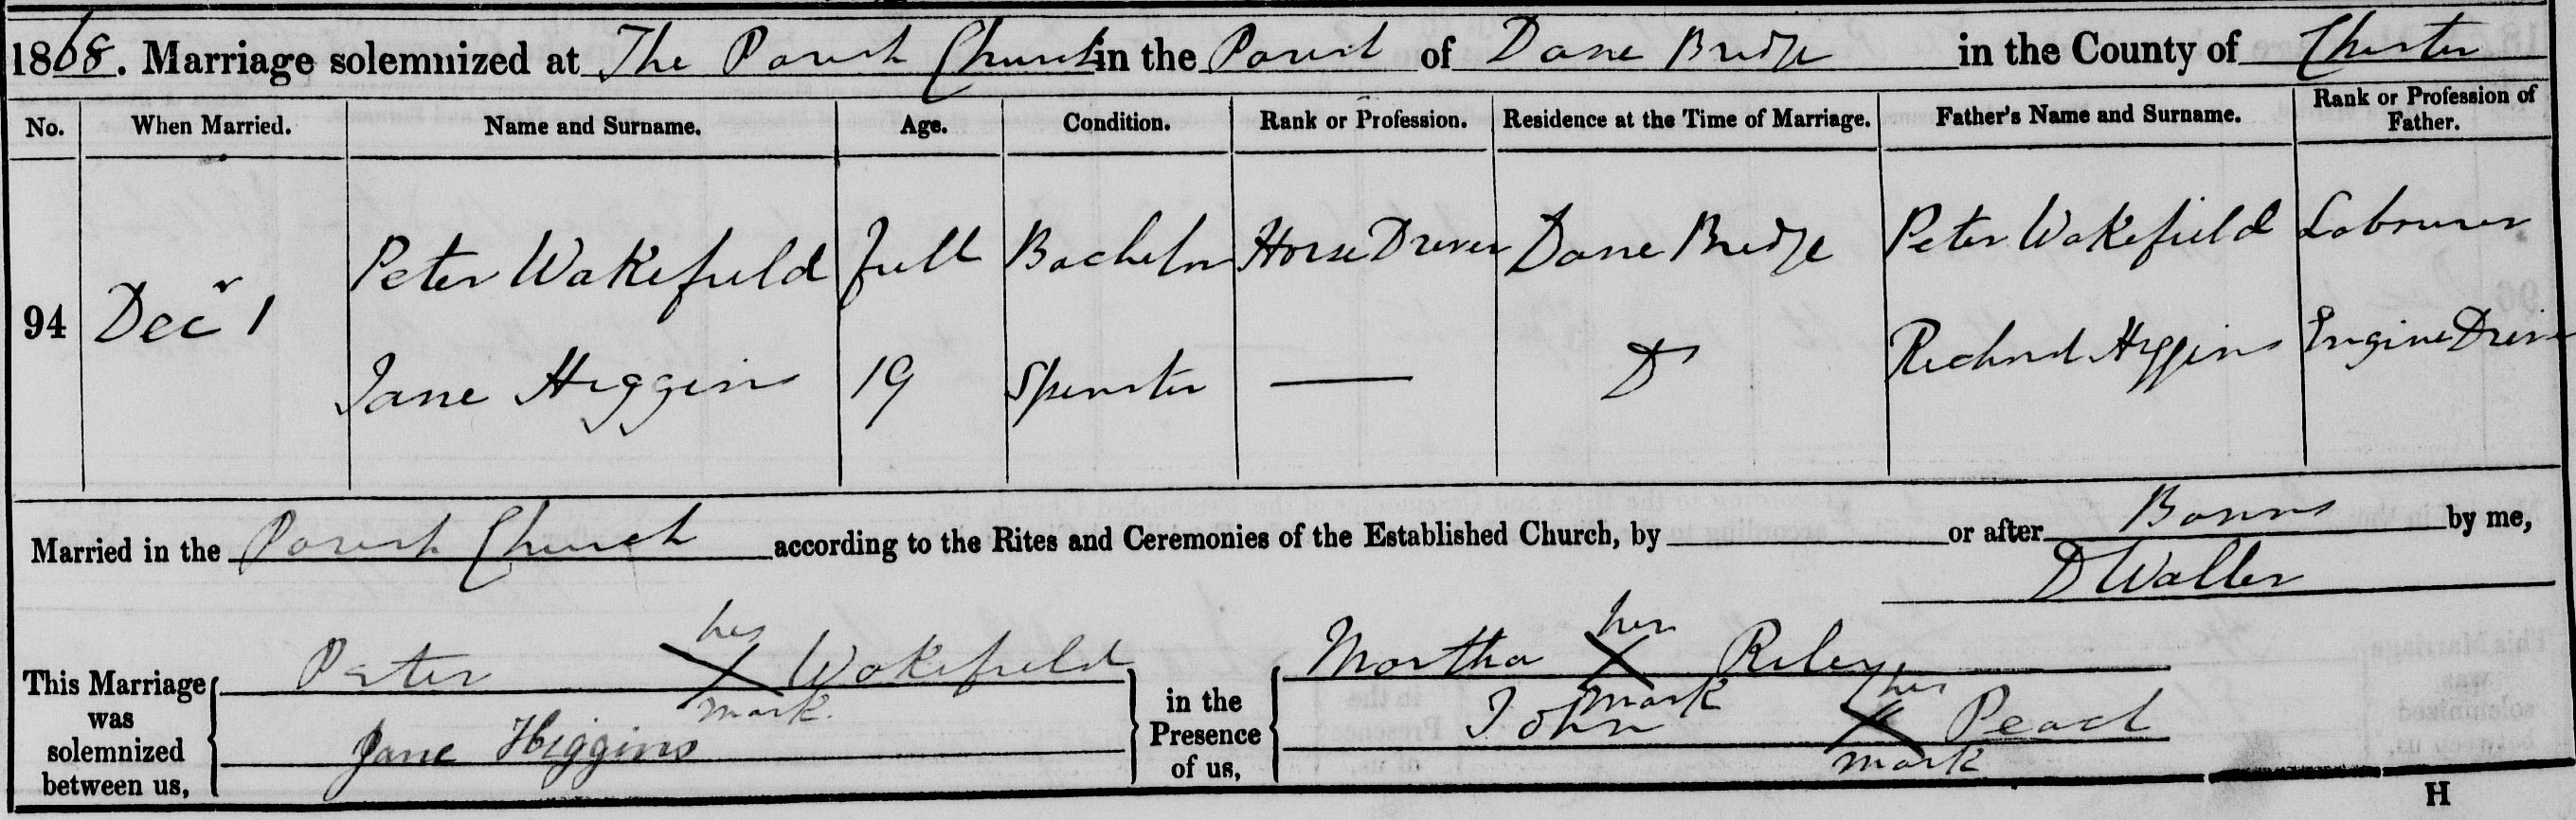 1868. Marriage solemnized at The Parish Church in the Parish of Dane Bridge in the County of Chester
No. When Married. Name and Surname. Age. Condition. Rank or Profession. Residence at the Time of Marriage. Father's Name and Surname. Rank or Profession of Father.
94 Decr 1
Peter Wakefield full Bachelor Horse Driver Dane Bridge Peter Wakefield Labourer
Jane Higgins 19 Spinster — Do Richard Higgins Engine Driver
Married in the Parish Church according to the Rites and Ceremonies of the Established Church, by or after Banns by me,
D Waller
This Marriage was solemnized between us,
Peter his X mark Wakefield
Jane Higgins
in the Presence of us,
Martha her X mark Riley
John his X mark Peach
H